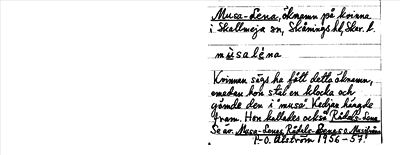 Musa-Lena, öknamn på kvinna
i Skallmeja sn, Skånings hd, Skar. l.
mùsaléna
Kvinnan sägs ha fått detta öknamn,
emedan hon stal en klocka och
gömde den i "musa". Kedjan hängde
fram. Hon kallades också Rådels-Lena
Se äv. Musa-Lena, Rådels-Lena o.
I-O. Ahlström 1956-57.